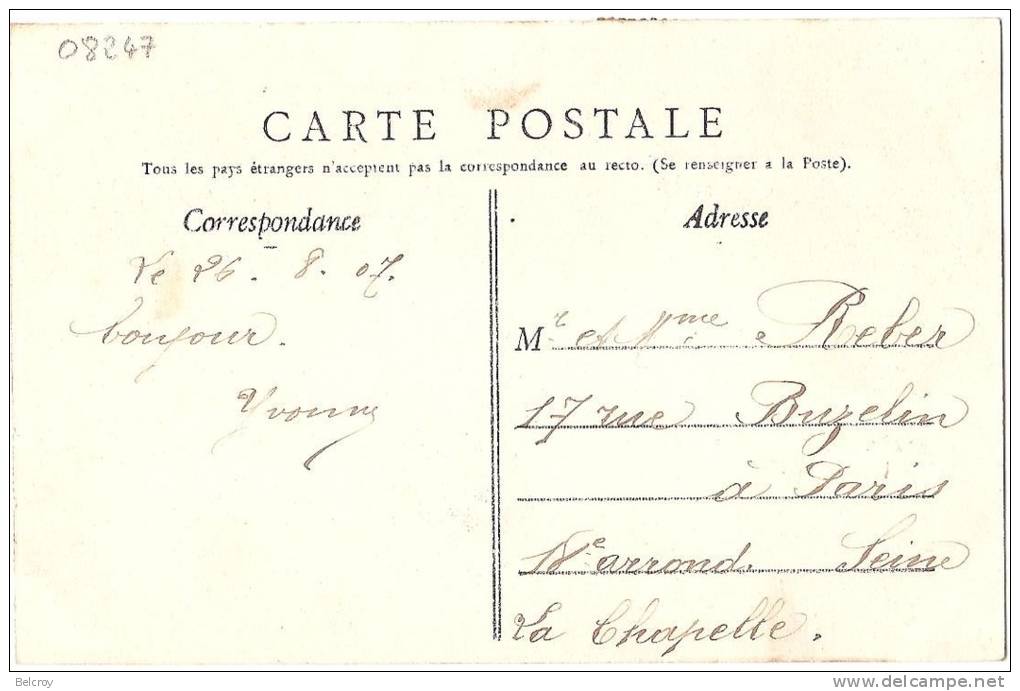 08247
CARTE POSTALE
Tous les pays étrangers n'acceptent pas la correspondance au recto. (Se renseigner a la Poste).
Correspondance
Le 26. 8. 07.
bonjour.
Yvonne
Adresse
Mr et Mme Reber
17 rue Buzelin
à Paris
18e arrond. Seine
La Chapelle.
Belcroy
http://belcroy.delcampe.net